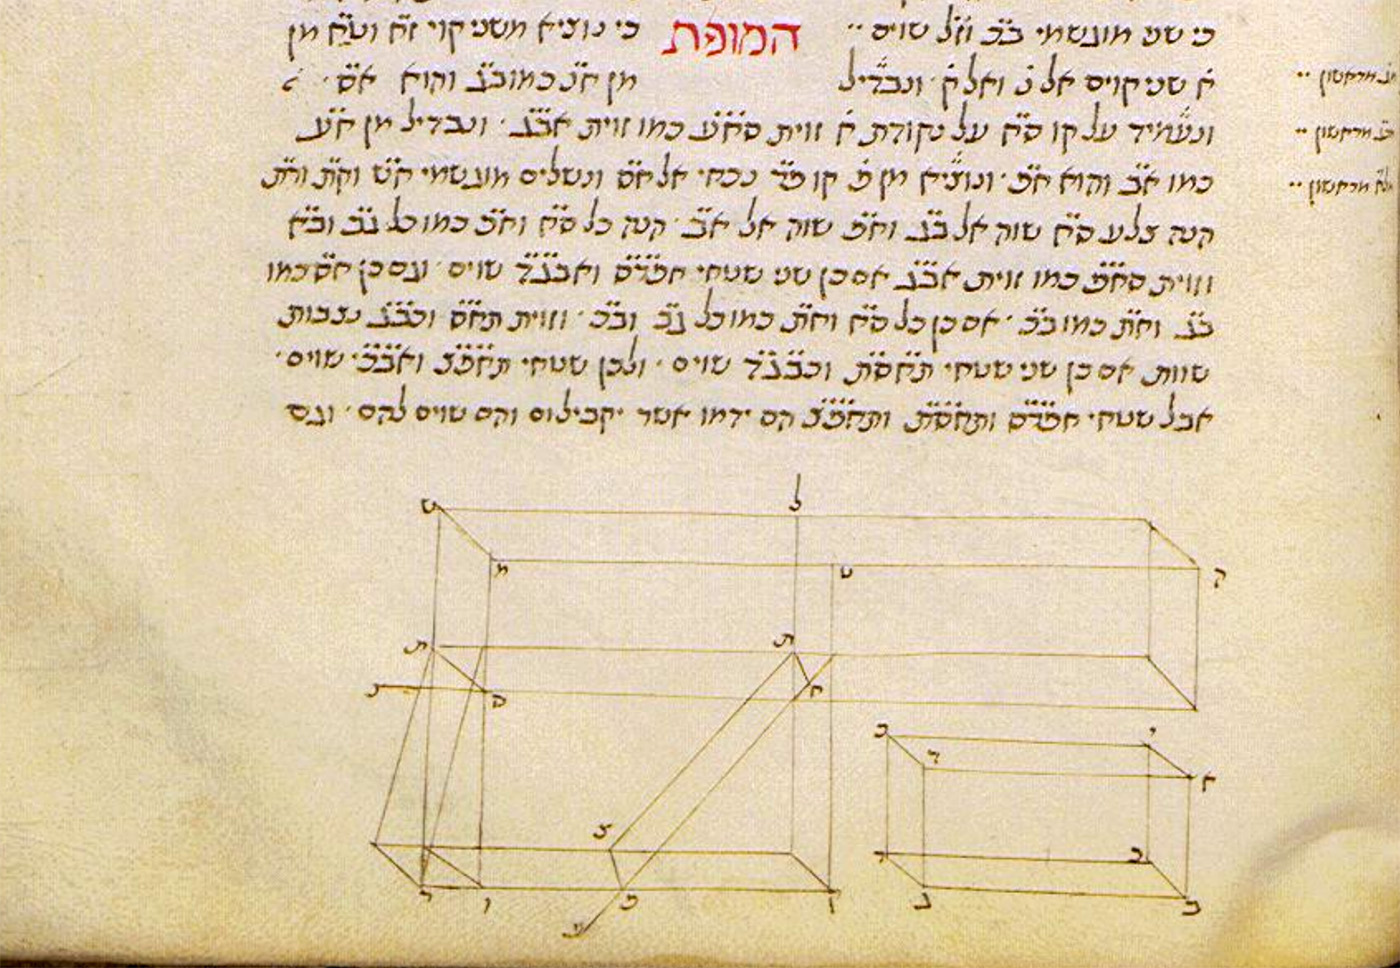 כי שני מוגשמי ב̈כ̈ וז̈ל̈ שוים ··
המופת
כי נוציא משני קוי ז̈ח̈ וט̈ח̈ מן
ח̇ שני קוים אל נ̇ ואל ק̇ · ונבדיל
מן ח̈נ̈ כמו ב̈ג̈ והוא ח̈ס̈ ·
ונעמיד על קו ס̈ח̈ על נקודת ח̇ זוית ס̈ח̈ע̈ כמו זוית א̈ב̈ג̈ · ונבדיל מן ח̈ע̈
כמו א̈ב̈ והוא ח̈פ̈ · ונוציא מן פ̇ קו פ̈ר̈ נכחי אל ח̈ס̈ ונשלים מוגשמי ח̈ש̈ וק̈ת̈ ור̈ת̈
קנה צלע ס̈ח̈ שוה אל ב̈ג̈ וח̈פ̈ שוה אל א̈ב̈ · קנה כל ס̈ח̈ וח̈פ̈ כמו כל ג̈ב̈ וב̈א̈
וזוית ס̈ח̈פ̈ כמו זוית א̈ב̈ג̈ אם כן שני שטחי ח̈פ̈ר̈ס̈ וא̈ב̈ג̈ד̈ שוים · וגם כן ח̈ס̈ כמו
ב̈ג̈ וח̈ת̈ כמו ב̈כ̈ · אם כן כל ס̈ח̈ וח̈ת̈ כמו כל ג̈ב̈ וב̈כ̈ · וזוית ת̈ח̈ס̈ וכ̈ב̈ג̈ נצבות
שוות אם כן שני שטחי ת̈ח̈ס̈ת̈ וכ̈ב̈ג̈ד̈ שוים · ולכן שטחי ת̈ח̈פ̈צ̈ וא̈ב̈כ̈י̈ שוים ·
אבל שטחי ח̈פ̈ר̈ס̈ ות̈ח̈ס̈ת̈ ות̈ח̈פ̈צ̈ הם ידמו אשר יקבילום והם שוים להם · וגם
מראשון ··
מראשון ··
מראשון ··
ט
ל
מ
ש
ק
ת
ת
נ
ס
ח
כ
י
ד
א
צ
ר
ו
פ
ז
ג
ב
ע